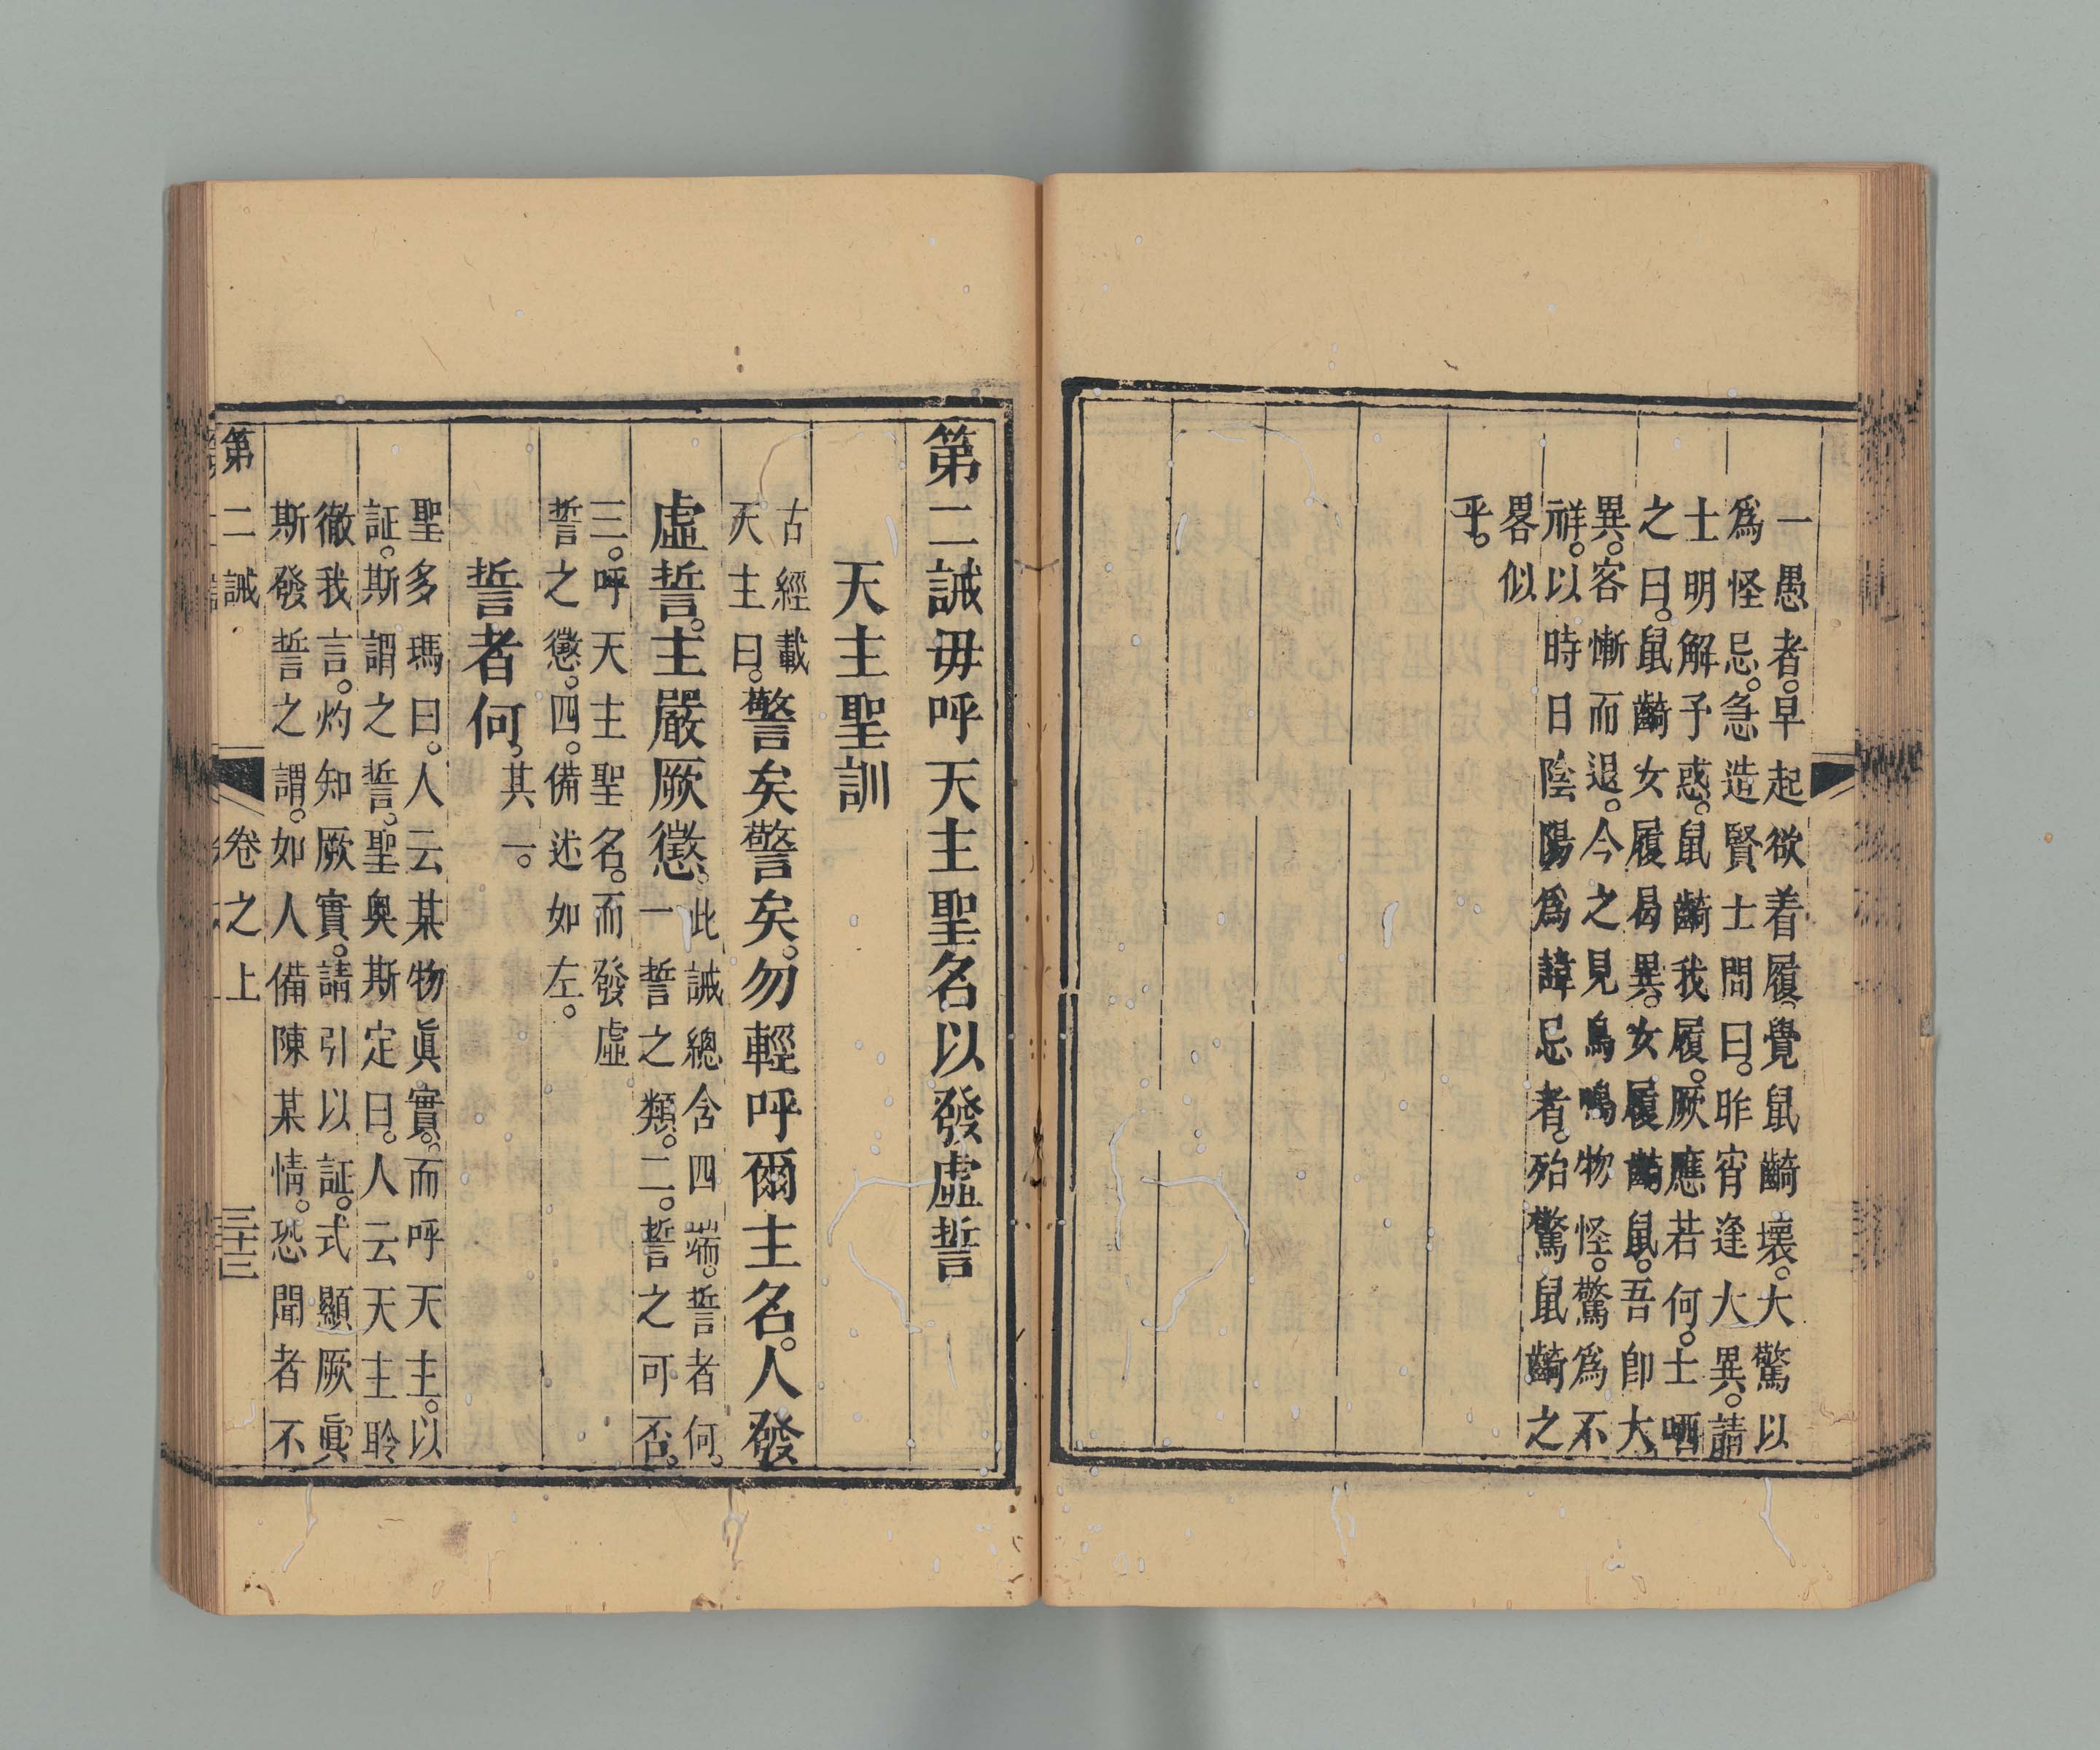 一愚者。早起欲着履。覺鼠齮壞。大驚以
爲怪忌。急造賢士問曰。昨宵逢大異。請
士明解予惑。鼠齮我履。厥應若何。士哂
之曰。鼠齮女履曷異。女履齮鼠。吾卽大
異。客慚而退。今之見鳥鳴物怪。驚爲不
祥。以時日陰陽爲諱忌者。殆驚鼠齮之
畧似
乎。
第二誡毋呼天主聖名以發虛誓
天主聖訓
古經載
天主曰。警矣警矣。勿輕呼爾主名。人發
虛誓。主嚴厥懲。此誡總含四端。誓者何。
一誓之類。二。誓之可否。
三。呼天主聖名。而發虛
誓之懲。四。備述如左。
誓者何。其一。
聖多瑪曰。人云某物眞實。而呼天主。以
証。斯謂之誓。聖奧斯定曰。人云天主聆
徹我言。灼知厥實。請引以証。式顯厥眞
斯發誓之謂。如人備陳某情。恐聞者不
第二誡
卷之上
三十三